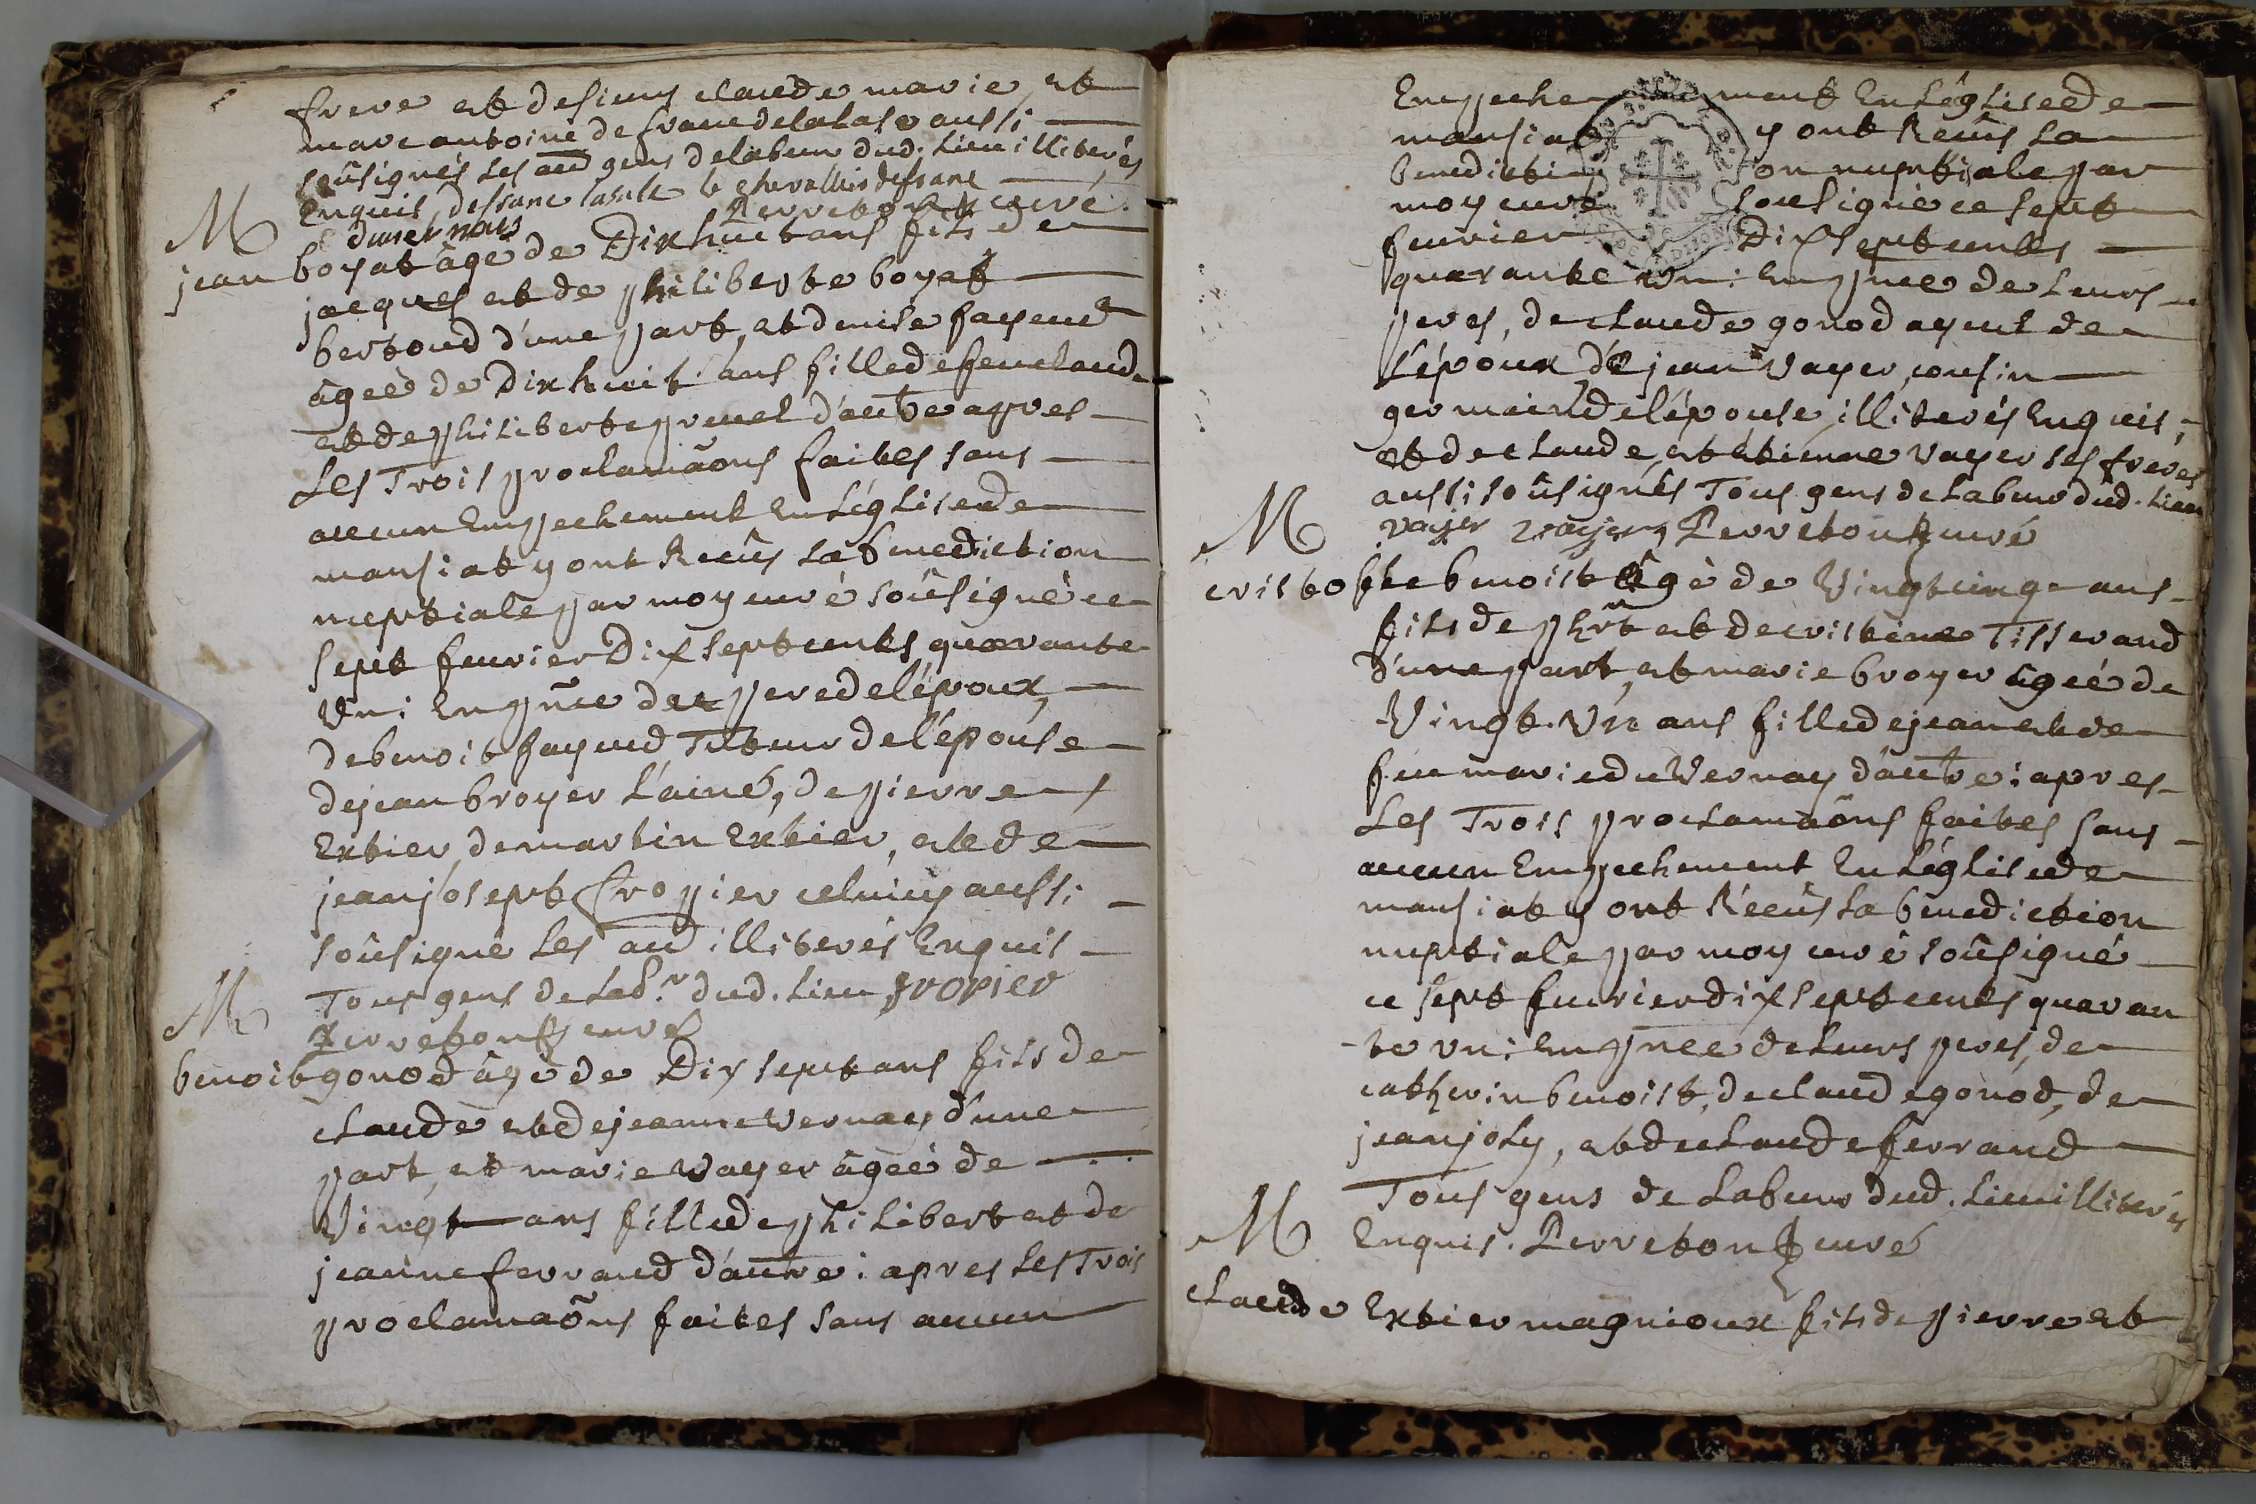 frere et de sieurs claude marie, et
marc antoine de franc de la lase aussi
soûsignés les au͠ gens de labeur dud. lieu illiterés
Enquis, deffranc lasalle le chevallier deffranc
duvernais Perreton ptre curé
M
jean boyat âgé de Dix huit ans fils de
jacques et de philiberte boyat
bertoud d'une part, et denise fayeud
âgeé de Dix huit ans fille de feu claude
et de philiberte pruel d'aut͠re apres
Les Trois proclamãons faites sans
aucun Empechement en L'églisede
mansiat y ont Receûs La benediction
nuptiale par moy curé soûsigné ce
sept feuvrier Dix sept cents quarante
Vn: En pñce des pere de l'époux,
de benoit fayeud Tuteur de l'épouse
de jean broyer L'ainé, de pierre
Extier, de martin Extier, et de
jean joseph fropier celuicy aussi
soûsigné Les au͠ illiterés Enquis
M
Tous gens de Lab.r dud. Lieu fropier
Perreton ptre curé
benoit gonod âgé de Dix sept ans fils de
claude et de jeanne Vernay d'une
part, et marie Vayer âgeé de
Vingt ans fille de philibert et de
jeanne ferraud d'autre: apres Les Trois
proclamaõns faites sans aucun
Empeche ment En L'églisede
mansiat y ont Receûs La
benedicti on nuptiale par
moy curé soussigné ce sept
feuvrier Dix sept cents
quarante Vn: En pñce de Leurs
peres, de claude gonod ayeul de
L'époux de jean Vayer, cousin
germain de l'épouse illiterés Enquis,
et de claude et etienne Vayer ses freres
aussi soûsignés Tous gens de Labeur dud. Lieu
M
vayer vayer Perreton ptre curé
cristophle benoist âgé de Vingt cinq ans
fils de phr̃t et de cristine Tisserand
d'une part, et marie broyer âgeé de
Vingt. Vn ans fille de jean et de
feu marie du Vernay d'autre: apres
Les Trois proclamaõns faites sans
aucun Empechement En L'églisede
mansiat y ont Réceûs La benediction
nuptiale par moy curé soûsigné
ce sept feuvrier dix sept cents quaran
te vn: En pñce de Leurs peres, de
catherin benoist, de claude gonod, de
jean joly, et de claude ferrand
Tous gens de Labeur dud. Lieu illiterés
M
Enquis. Perreton ptre curé
claude Extier magnioux fils de pierre et